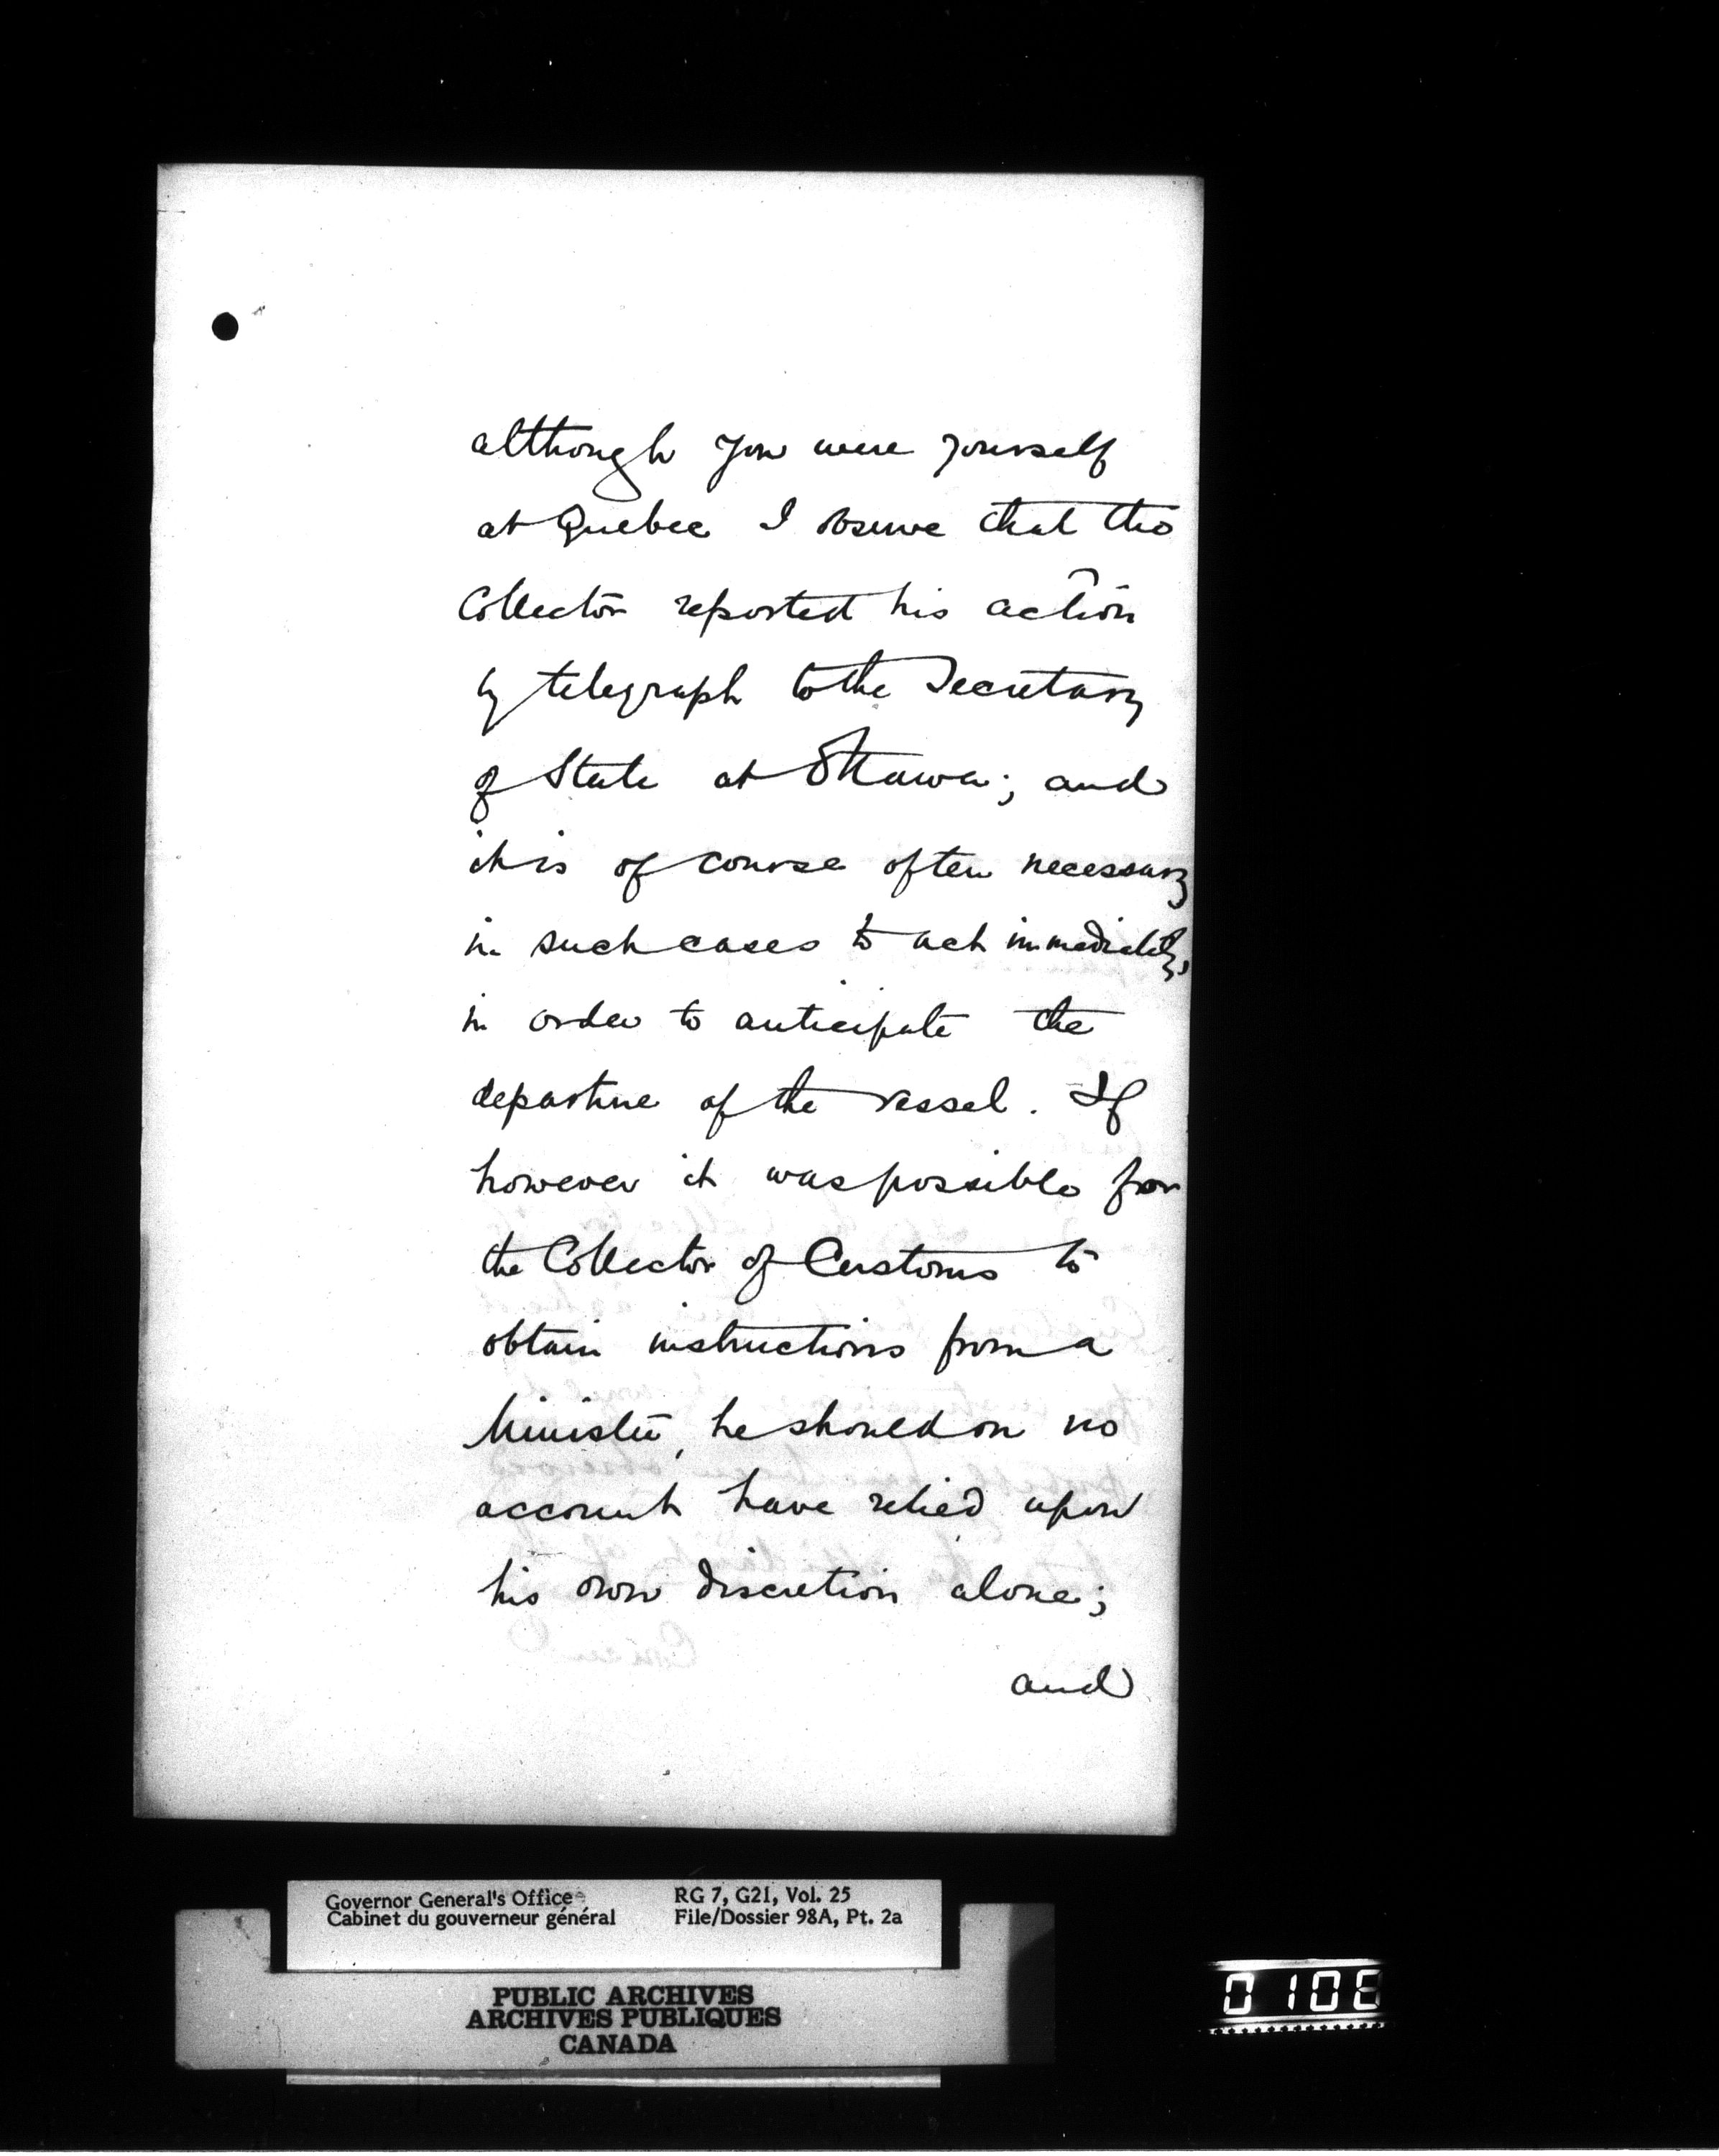 although you were yourself
at Quebec I observe that the
Collector reported his action
by telegraph to the Secretary
of State at Ottawa; and
it is of course often necessary
in such cases to act immediately,
in order to anticipate the
departure of the vessel. If
however it was possible for
the Collector of Customs to
obtain instructions from a
Minister, he should on no
account have relied upon
his own discretion alone;
and
Governor General's Office
Cabinet du gouverneur général
RG 7, G21, Vol. 25
File/Dossier 98A, Pt. 2a
PUBLIC ARCHIVES
ARCHIVES PUBLIQUES
CANADA